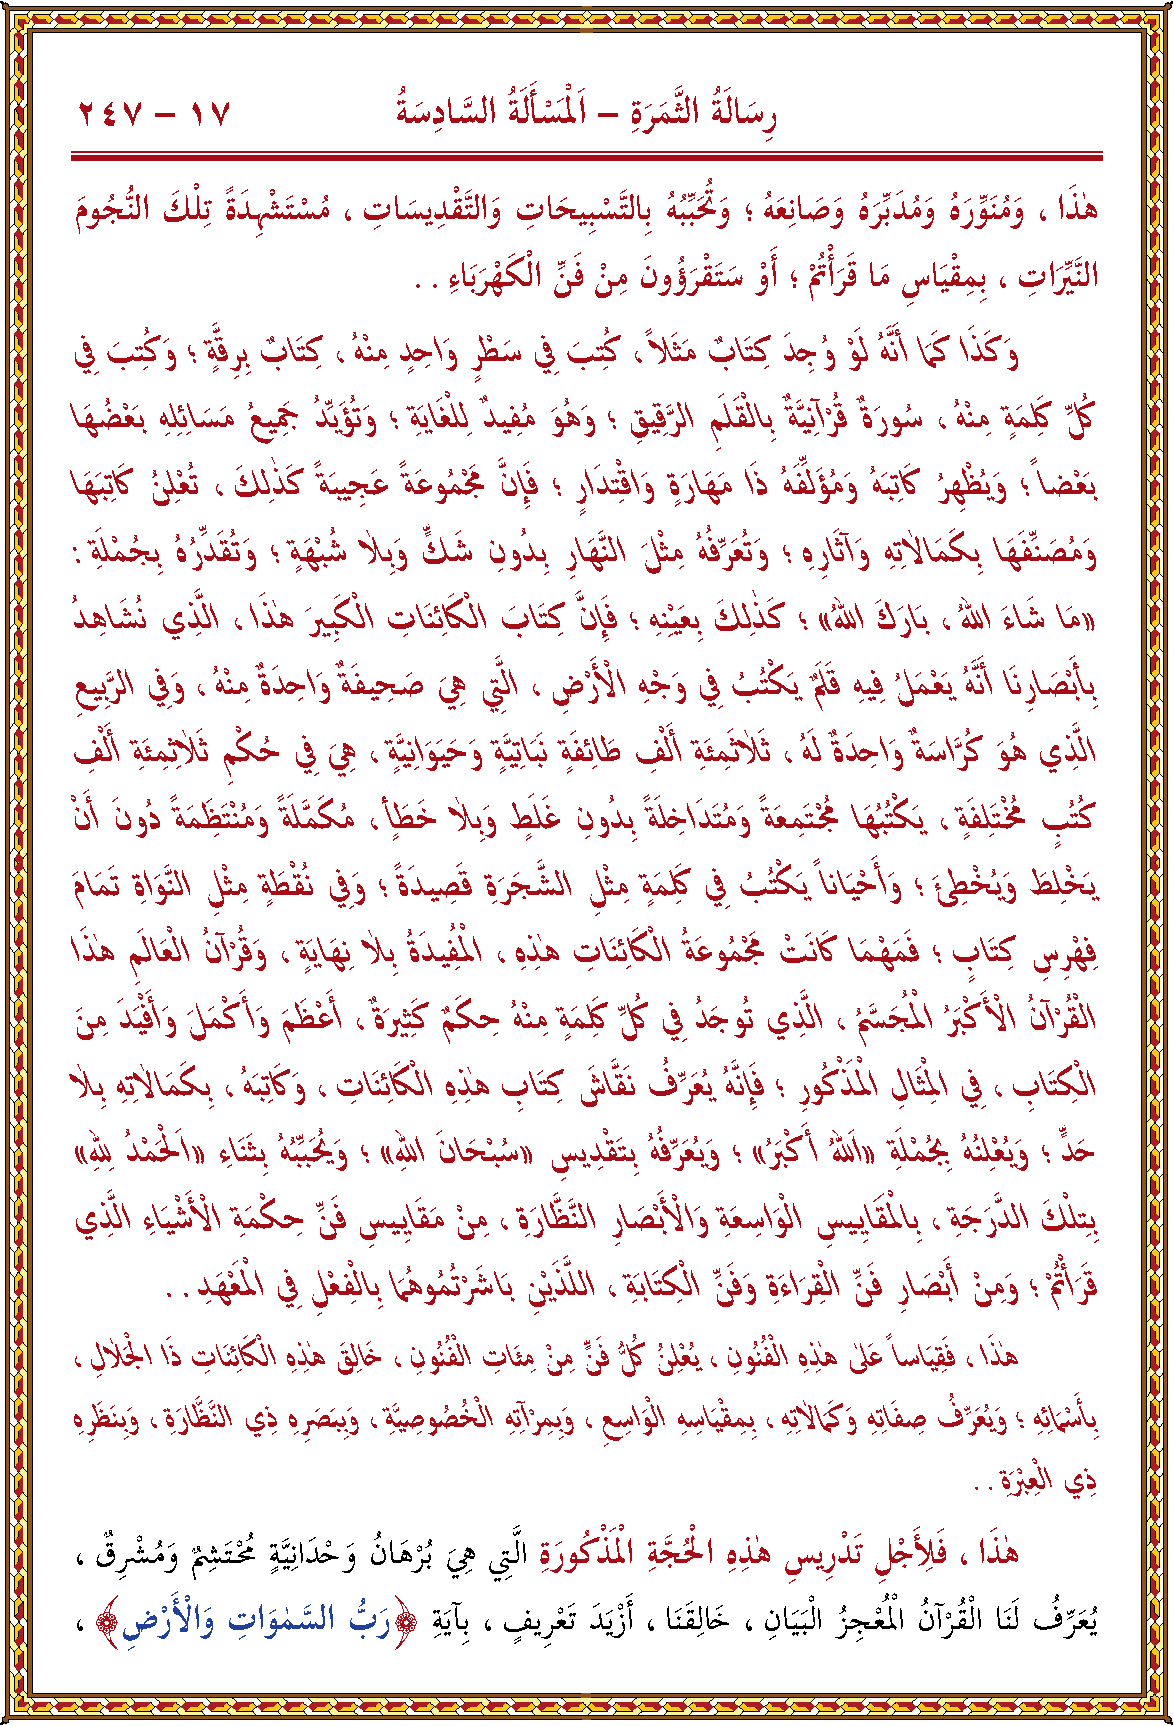 رِسَالَةُ الثَّمَرَةِ – اَلْمَسْأَلَةُ السَّادِسَةُ ١٧ – ٢٤٧
هٰذَا ، وَمُنَوِّرَهُ وَمُدَبِّرَهُ وَصَانِعَهُ ؛ وَتُحَبِّبُهُ بِالتَّسْبِيحَاتِ وَالتَّقْدِيسَاتِ ، مُسْتَشْهِدَةً تِلْكَ النُّجُومَ
النَّيِّرَاتِ ، بِمِقْيَاسِ مَا قَرَأْتُمْ ؛ أَوْ سَتَقْرَؤُونَ مِنْ فَنِّ الْكَهْرَبَاءِ . .
وَكَذَا كَمَا أَنَّهُ لَوْ وُجِدَ كِتَابٌ مَثَلاً ، كُتِبَ فِي سَطْرٍ وَاحِدٍ مِنْهُ ، كِتَابٌ بِرِقَّةٍ ؛ وَكُتِبَ فِي
كُلِّ كَلِمَةٍ مِنْهُ ، سُورَةٌ قُرْآنِيَّةٌ بِالْقَلَمِ الرَّقِيقِ ؛ وَهُوَ مُفِيدٌ لِلْغَايَةِ ؛ وَتُؤَيِّدُ جَمِيعُ مَسَائِلِهِ بَعْضُهَا
بَعْضاً ؛ وَيُظْهِرُ كَاتِبَهُ وَمُؤَلِّفَهُ ذَا مَهَارَةٍ وَاقْتِدَارٍ ؛ فَإِنَّ مَجْمُوعَةً عَجِيبَةً كَذٰلِكَ ، تُعْلِنُ كَاتِبَهَا
وَمُصَنِّفَهَا بِكَمَالَاتِهِ وَآثَارِهِ ؛ وَتُعَرِّفُهُ مِثْلَ النَّهَارِ بِدُونِ شَكٍّ وَبِلَا شُبْهَةٍ ؛ وَتُقَدِّرُهُ بِجُمْلَةِ :
«مَا شَاءَ اللهُ ، بَارَكَ اللهُ» ؛ كَذٰلِكَ بِعَيْنِهِ ؛ فَإِنَّ كِتَابَ الْكَائِنَاتِ الْكَبِيرَ هٰذَا ، الَّذِي نُشَاهِدُ
بِأَبْصَارِنَا أَنَّهُ يَعْمَلُ فِيهِ قَلَمٌ يَكْتُبُ فِي وَجْهِ الْأَرْضِ ، الَّتِي هِيَ صَحِيفَةٌ وَاحِدَةٌ مِنْهُ ، وَفِي الرَّبِيعِ
الَّذِي هُوَ كُرَّاسَةٌ وَاحِدَةٌ لَهُ ، ثَلَاثَمِئَةِ أَلْفِ طَائِفَةٍ نَبَاتِيَّةٍ وَحَيَوَانِيَّةٍ ، هِيَ فِي حُكْمِ ثَلَاثِمِئَةِ أَلْفِ
كُتُبٍ مُخْتَلِفَةٍ ، يَكْتُبُهَا مُجْتَمِعَةً وَمُتَدَاخِلَةً بِدُونِ غَلَطٍ وَبِلَا خَطَأٍ ، مُكَمَّلَةً وَمُنْتَظِمَةً دُونَ أَنْ
يَخْلِطَ وَيُخْطِئَ ؛ وَأَحْيَاناً يَكْتُبُ فِي كَلِمَةٍ مِثْلِ الشَّجَرَةِ قَصِيدَةً ؛ وَفِي نُقْطَةٍ مِثْلِ النَّوَاةِ تَمَامَ
فِهْرِسِ كِتَابٍ ؛ فَمَهْمَا كَانَتْ مَجْمُوعَةُ الْكَائِنَاتِ هٰذِهِ ، الْمُفِيدَةُ بِلَا نِهَايَةٍ ، وَقُرْآنُ الْعَالَمِ هٰذَا
الْقُرْآنُ الْأَكْبَرُ الْمُجَسَّمُ ، الَّذِي تُوجَدُ فِي كُلِّ كَلِمَةٍ مِنْهُ حِكَمٌ كَثِيرَةٌ ، أَعْظَمَ وَأَكْمَلَ وَأَفْيَدَ مِنَ
الْكِتَابِ ، فِي الْمِثَالِ الْمَذْكُورِ ؛ فَإِنَّهُ يُعَرِّفُ نَقَّاشَ كِتَابِ هٰذِهِ الْكَائِنَاتِ ، وَكَاتِبَهُ ، بِكَمَالَاتِهِ بِلَا
حَدٍّ ؛ وَيُعْلِنُهُ بِجُمْلَةِ «اَللهُ أَكْبَرُ» ؛ وَيُعَرِّفُهُ بِتَقْدِيسِ «سُبْحَانَ اللهِ» ؛ وَيُحَبِّبُهُ بِثَنَاءِ «اَلْحَمْدُ لِلهِ»
بِتِلْكَ الدَّرَجَةِ ، بِالْمَقَايِيسِ الْوَاسِعَةِ وَالْأَبْصَارِ النَّظَّارَةِ ، مِنْ مَقَايِيسِ فَنِّ حِكْمَةِ الْأَشْيَاءِ الَّذِي
قَرَأْتُمْ ؛ وَمِنْ أَبْصَارِ فَنِّ الْقِرَاءَةِ وَفَنِّ الْكِتَابَةِ ، اللَّذَيْنِ بَاشَرْتُمُوهُمَا بِالْفِعْلِ فِي الْمَعْهَدِ . .
هٰذَا ، فَقِيَاساً عَلَى هٰذِهِ الْفُنُونِ ، يُعْلِنُ كُلُّ فَنٍّ مِنْ مِئَاتِ الْفُنُونِ ، خَالِقَ هٰذِهِ الْكَائِنَاتِ ذَا الْجَلَالِ ،
بِأَسْمَائِهِ ؛ وَيُعَرِّفُ صِفَاتِهِ وَكَمَالَاتِهِ ، بِمِقْيَاسِهِ الْوَاسِعِ ، وَبِمِرْآتِهِ الْخُصُوصِيَّةِ ، وَبِبَصَرِهِ ذِي النَّظَّارَةِ ، وَبِنَظَرِهِ
ذِي الْعِبْرَةِ . .
هٰذَا ، فَلِأَجْلِ تَدْرِيسِ هٰذِهِ الْحُجَّةِ الْمَذْكُورَةِ الَّتِي هِيَ بُرْهَانُ وَحْدَانِيَّةٍ مُحْتَشِمٌ وَمُشْرِقٌ ،
يُعَرِّفُ لَنَا الْقُرْآنُ الْمُعْجِزُ الْبَيَانِ ، خَالِقَنَا ، أَزْيَدَ تَعْرِيفٍ ، بِآيَةِ ﴿رَبُّ السَّمٰوَاتِ وَالْأَرْضِ﴾ ،